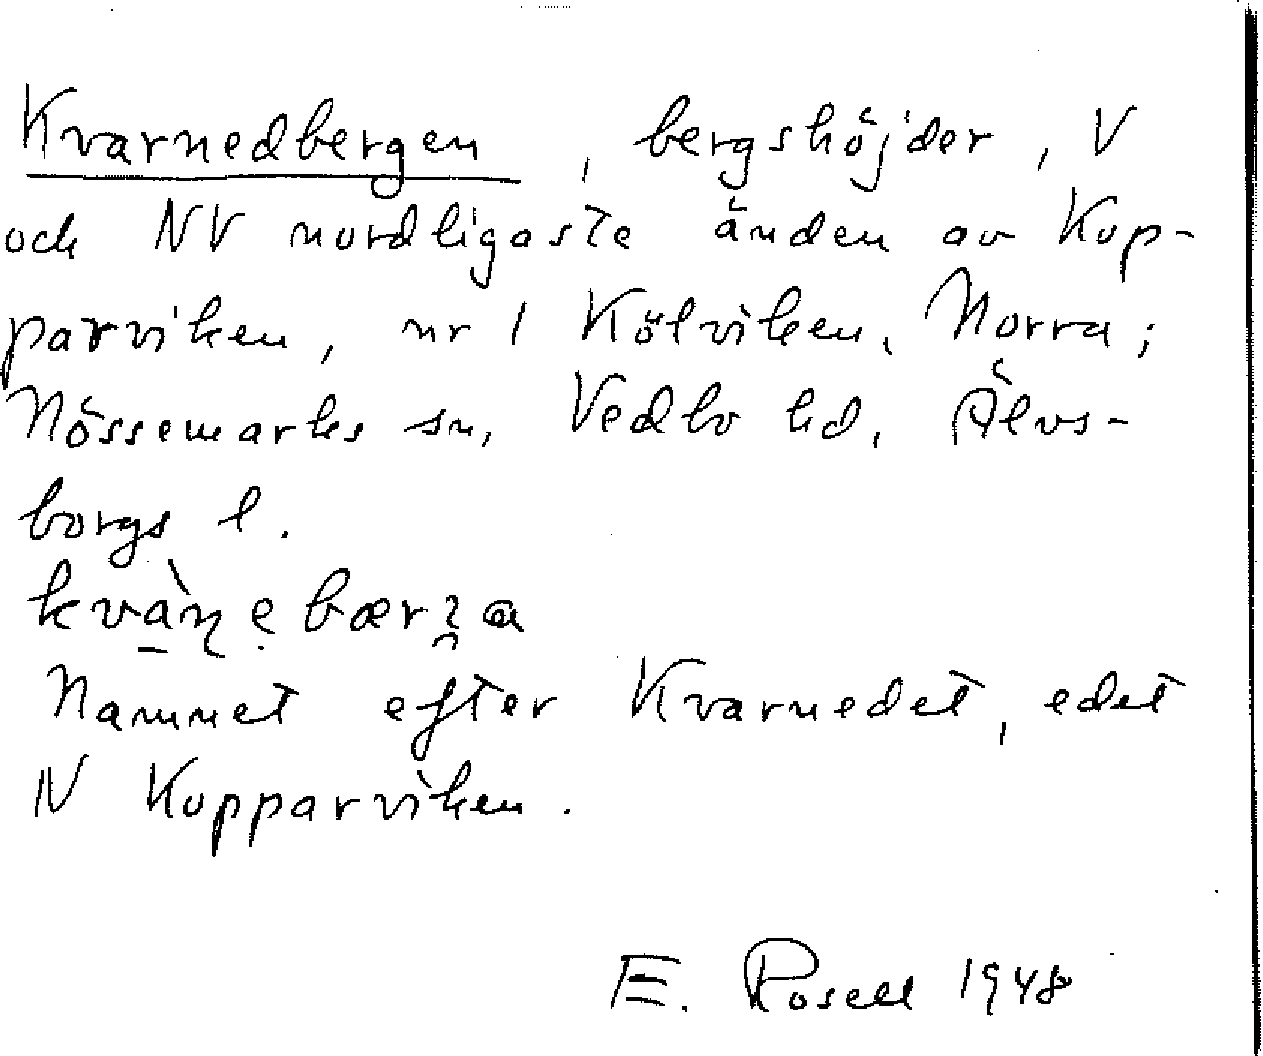 Kvarnedbergen, bergshöjder, V
och NV nordligaste änden av Kop-
parviken, nr 1 Kölviken, Norra;
Nössemarks sn, Vedbo hd, Älvs-
borgs l.
Namnet efter Kvarnedet, edet
N Kopparviken.
E. Rosell 1948